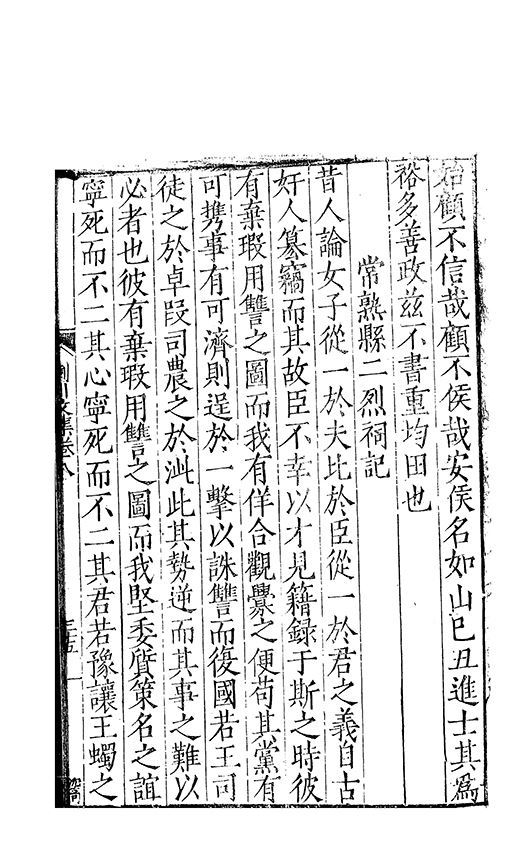 始顧不信哉顧不侯哉安侯名如山已丑進士其爲
裕多善政茲不書重均田也
常熟縣二烈祠記
昔人論女子從一於夫比於臣從一於君之義自古
奸人篡竊而其故臣不幸以才見籍録于斯之時彼
有棄瑕用讐之圖而我有佯合觀釁之便苟其黨有
可携事有可濟則逞於一擊以誅讐而復國若王司
徒之於卓段司農之於泚此其勢逆而其事之難以
必者也彼有棄瑕用讐之圖而我堅委質策名之誼
寧死而不二其心寧死而不二其君若豫讓王蠋之
荆川文集卷八
三十五